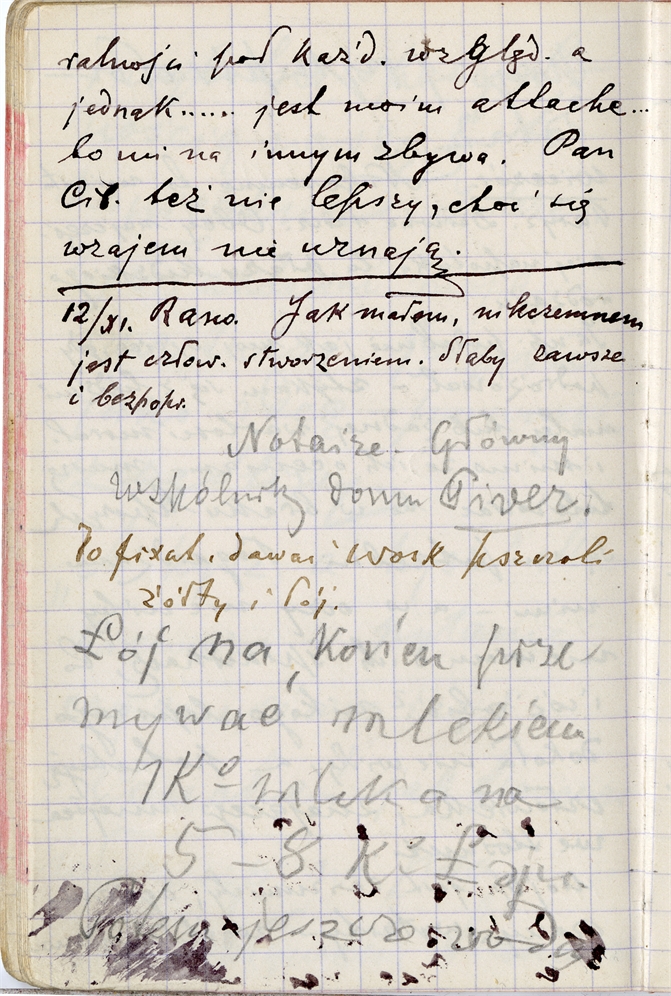 ralności pod każd. względ. a
jednak..... jest moim attaché...
to mi na innym zbywa. Pan
też nie lepszy, choć się
wzajem nie uznają.
12/XI. Rano. Jak małem, nikczemnem
jest człow. stworzeniem. Słaby zawsze
i bezpopr.
Notaire. Główny
wspólnik domu Piver.
To fixat. dawać wosk pszczeli
żółty i łój.
Łój na koniec prze-
mywać mlekiem
1 Ko mleka na
5 – 8 Ko Łoju.
Potem jeszcze wodą